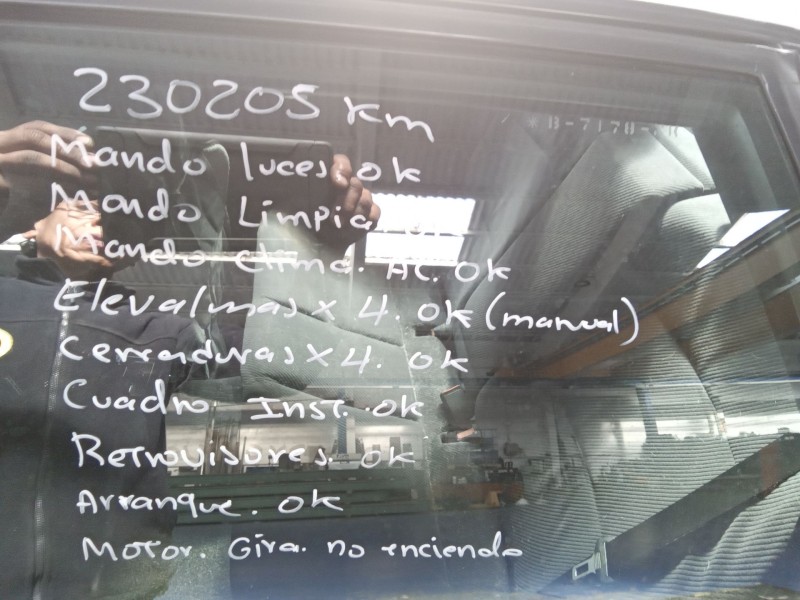 230205 km
B-7178-
Mando luces. ok
Mando Limpia. ok
Mando clima. AC. ok
Elevalunas x 4. ok (manual)
Cerraduras x 4. ok
Cuadro Inst. ok
Retrovisores. ok
Arranque. ok
Motor. Gira. no enciendo